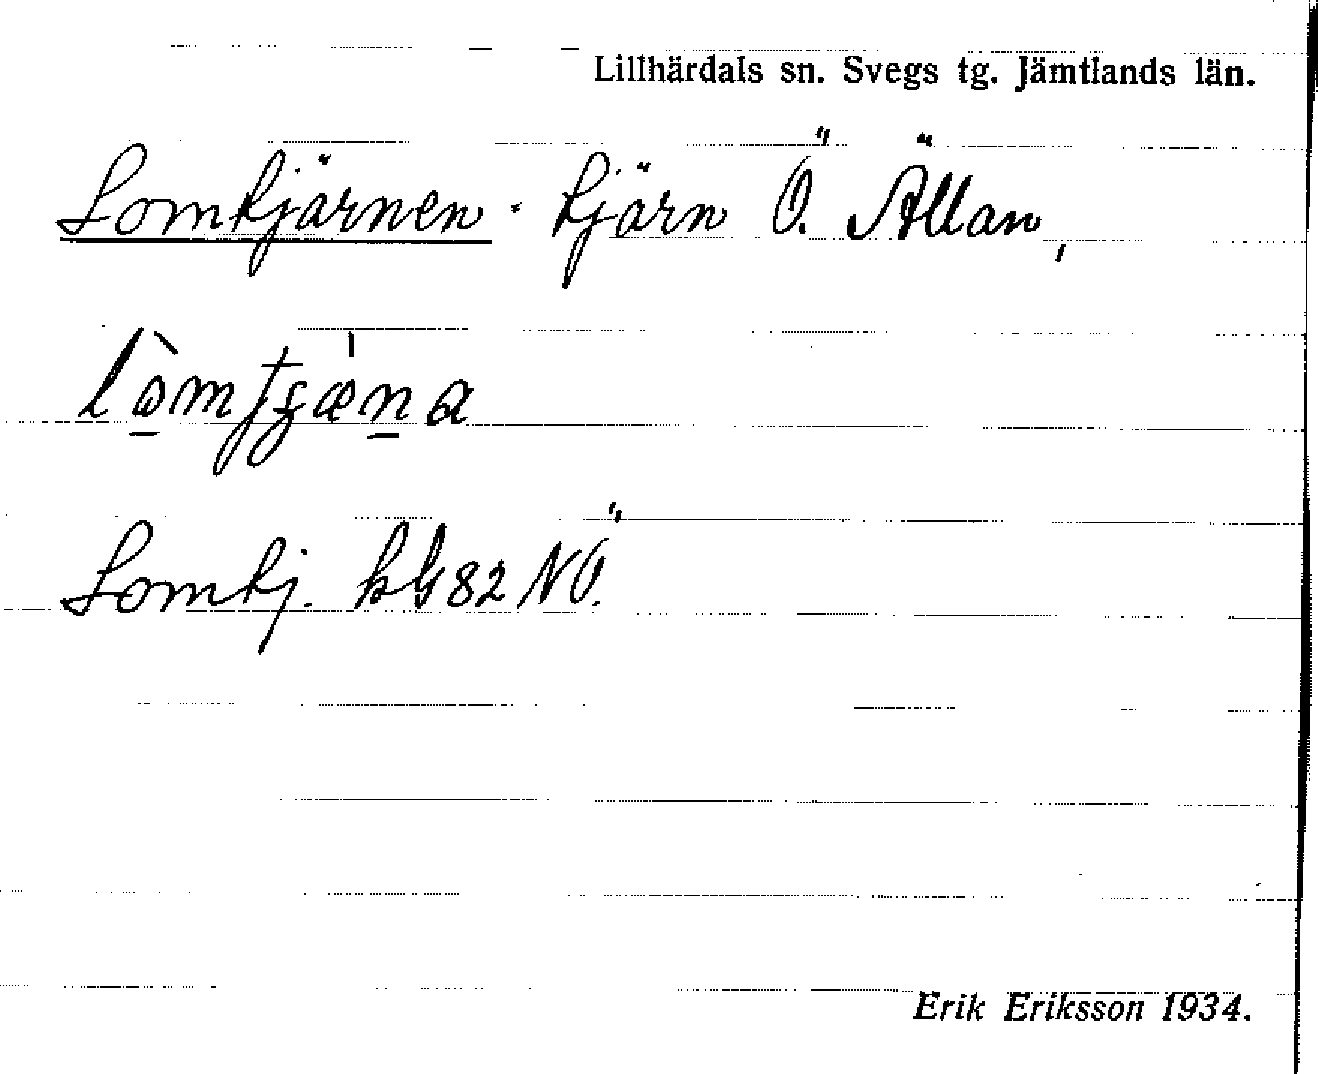 Lillhärdals sn. Svegs tg. Jämtlands län.
Lomkjärnen. kjärn Ö. Ällan,
Lomkj. kbl 82 NÖ.
Erik Eriksson 1934.